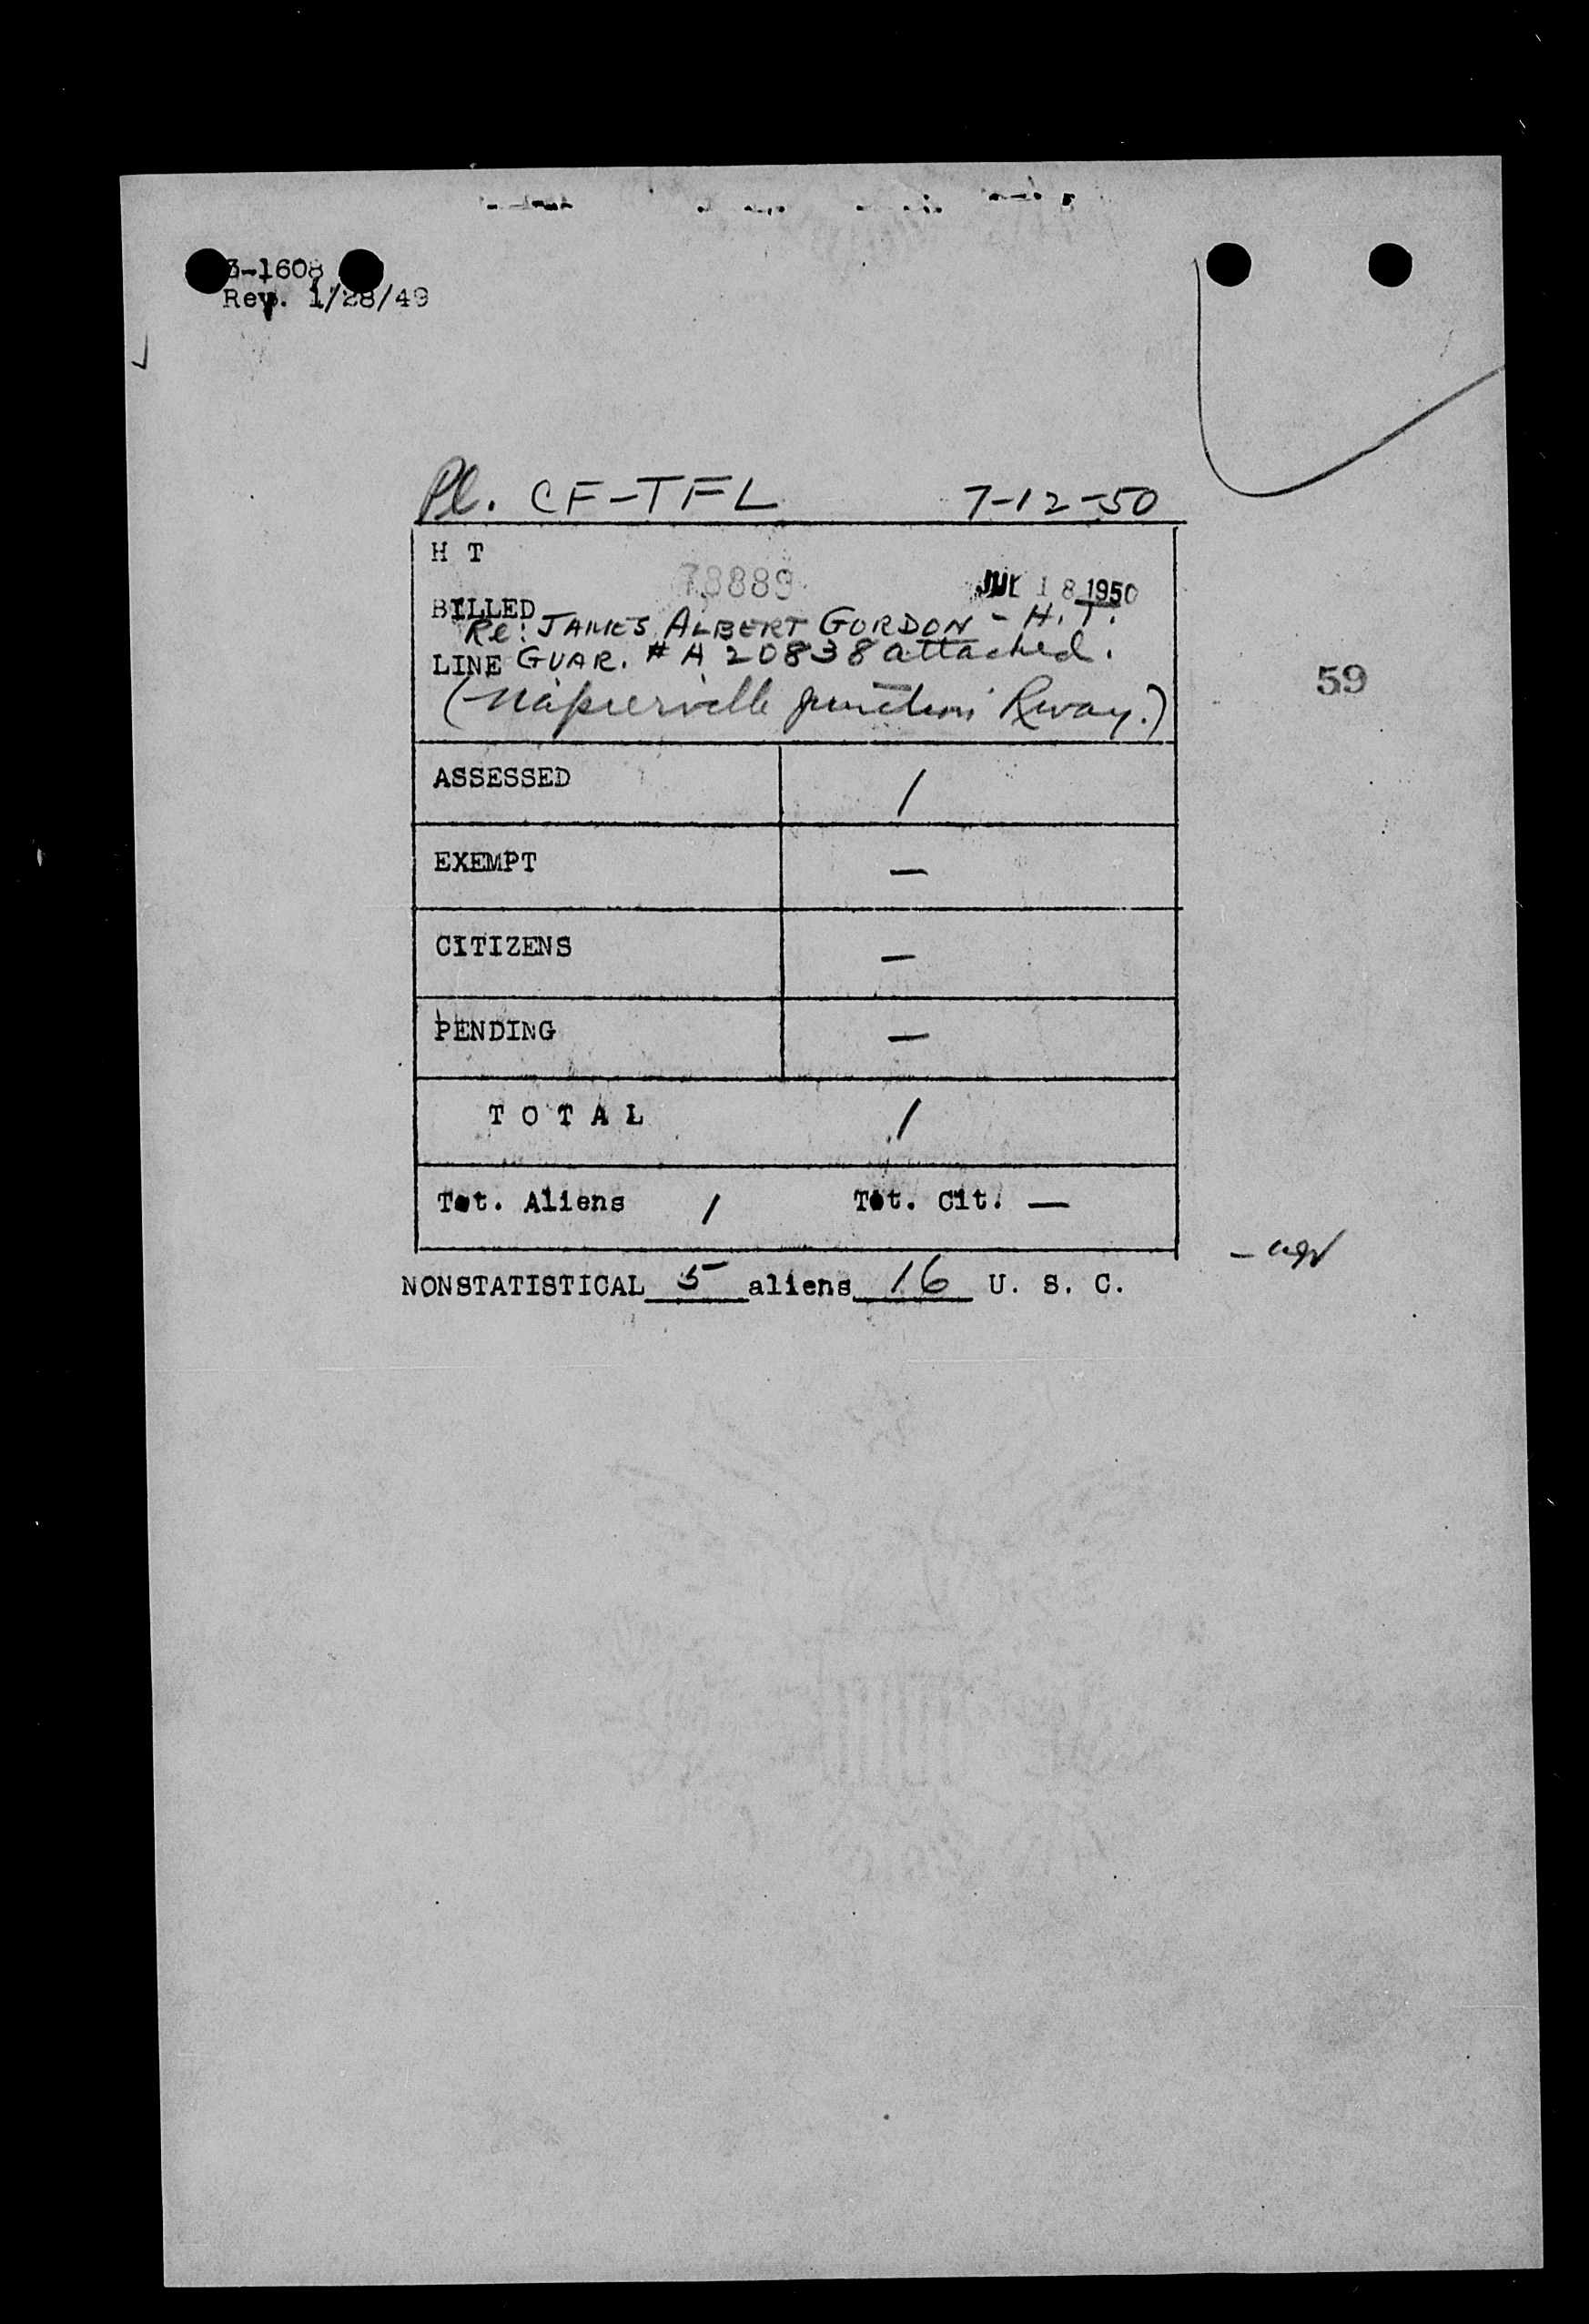 3-1608
Rev. 1/28/49
Pl. CF-TFL 7-12-50
H T
78889 JUL 18 1950
BILLED
Re: JAMES ALBERT GORDON - H.T.
LINE GUAR. # A 20838 attached.
(Napierville Junction Rway.)
59
ASSESSED /
EXEMPT —
CITIZENS —
PENDING —
T O T A L /
Tot. Aliens / Tot. Cit. —
NONSTATISTICAL 5 aliens 16 U. S. C.